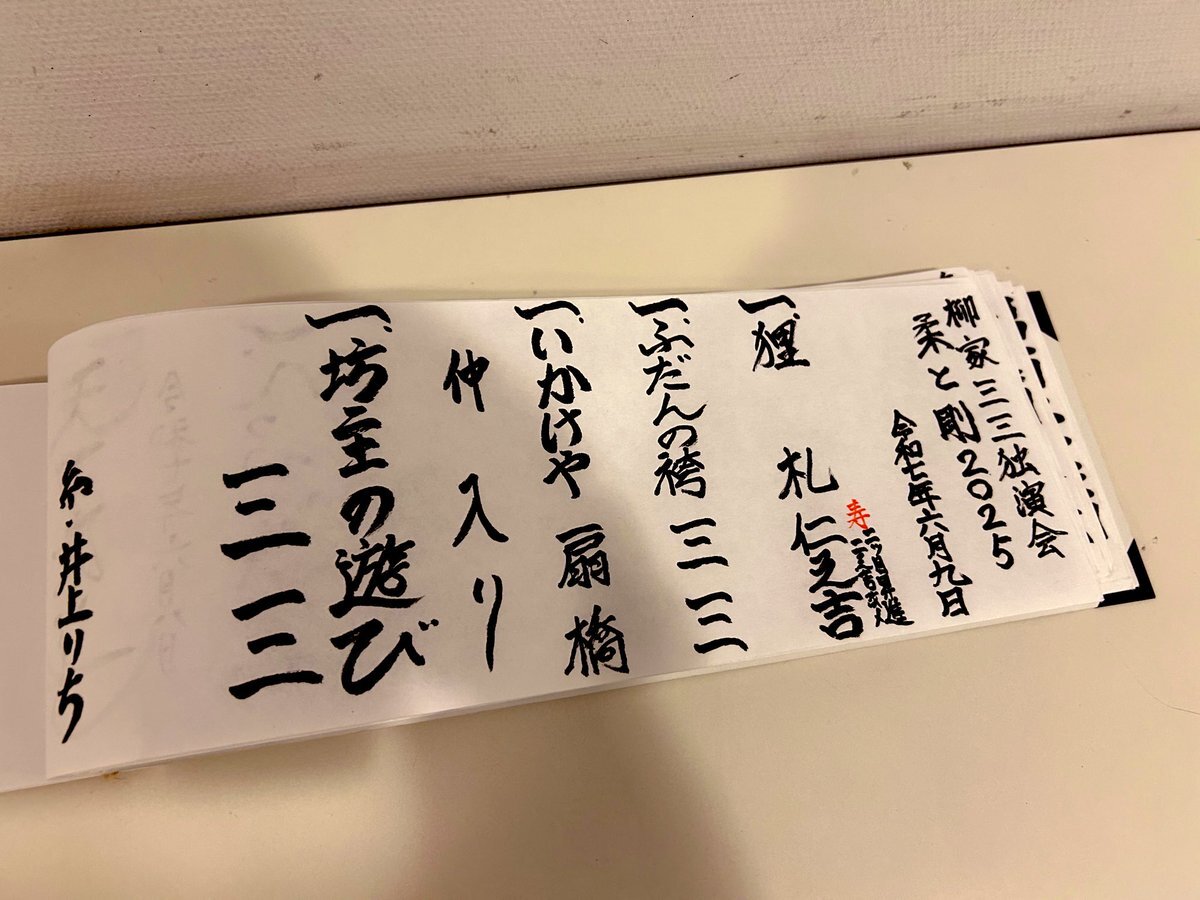 柳家三三独演会
柔と剛2025
令和七年六月九日
寿 二ツ目昇進
一、狸札 仁之吉
一、ふだんの袴 三三
一、いかけや 扇橋
仲入り
一、坊主の遊び
三三
糸・井上りち